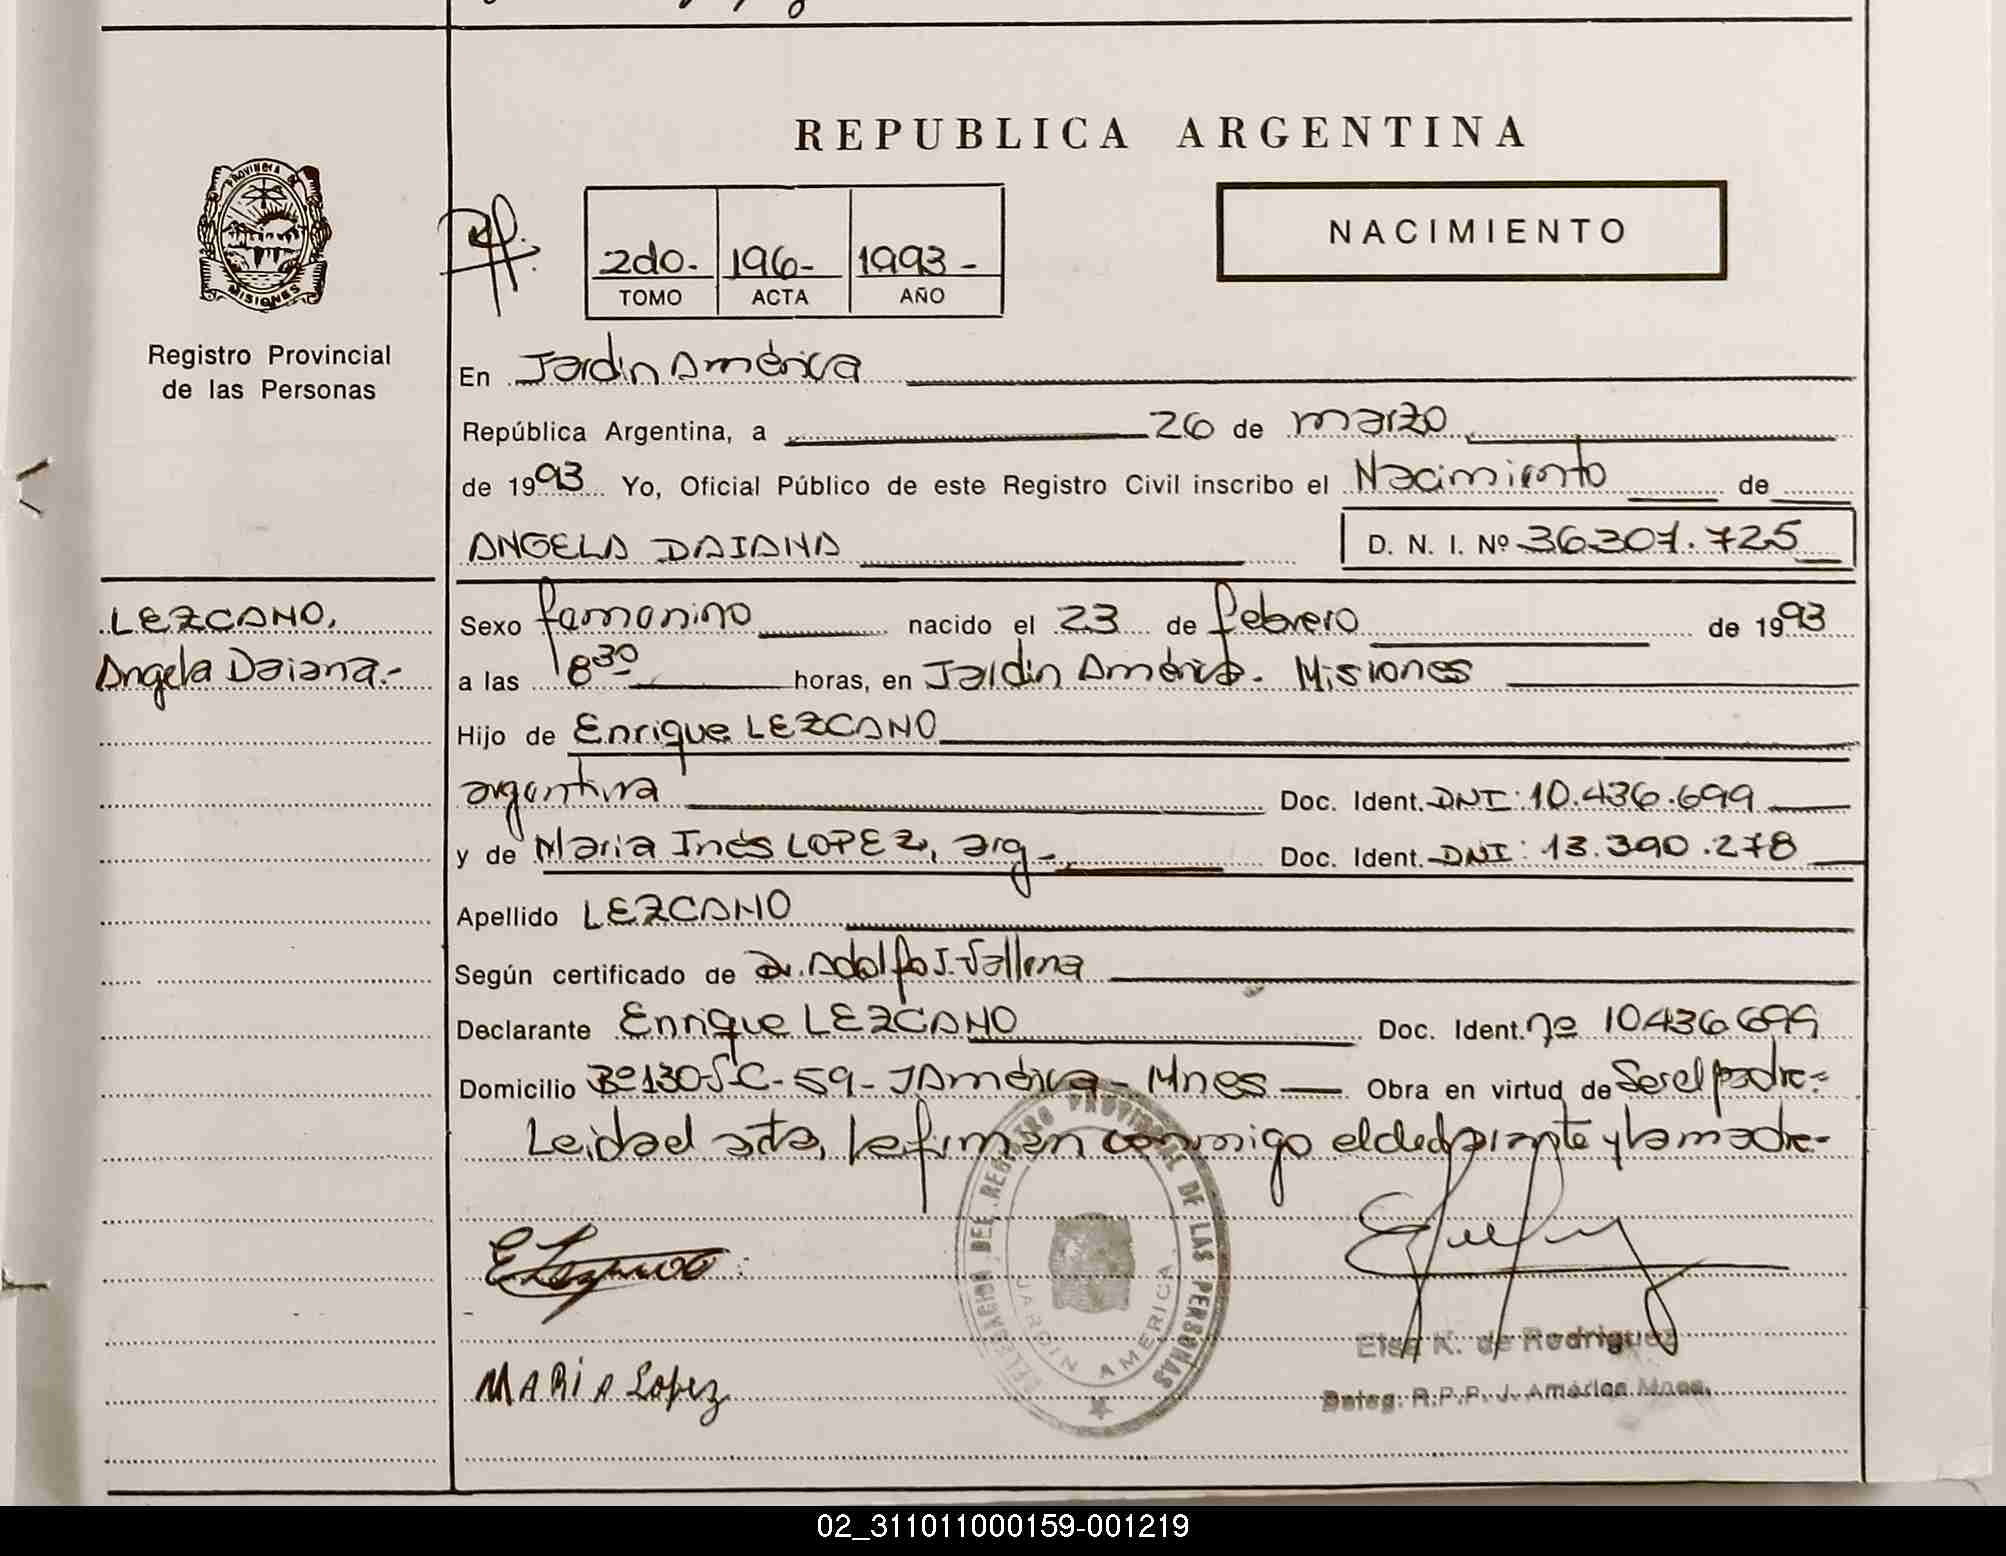 REPUBLICA ARGENTINA
PROVINCIA DE
MISIONES
Registro Provincial
de las Personas
2do. 196- 1993-
TOMO ACTA AÑO
NACIMIENTO
En Jardin América
República Argentina, a 26 de marzo
de 1993 Yo, Oficial Público de este Registro Civil inscribo el Nacimiento de
ANGELA DAIANA D. N. I. Nº 36.307.725
LEZCANO,
Angela Daiana.-
Sexo femenino nacido el 23 de febrero de 1993
a las 8³⁰ horas, en Jardin América. Misiones
Hijo de Enrique LEZCANO
argentina Doc. Ident. DNI: 10.436.699
y de Maria Inés LOPEZ, arg-. Doc. Ident. DNI: 13.390.278
Apellido LEZCANO
Según certificado de Dr. Adolfo J.
Declarante Enrique LEZCANO Doc. Ident. nº 10436.699
Domicilio Bº 130-S-C-59- JAmérica- Mnes Obra en virtud de Ser el padre-
Leida el acta, la firman conmigo el declarante y la madre-
DELEGACION DEL REGISTRO PROVINCIAL DE LAS PERSONAS
JARDIN AMERICA
E Lezcano
Elsa K. de Rodriguez
Deleg. R.P.P. J. América Mnes.
MARIA Lopez
02_311011000159-001219